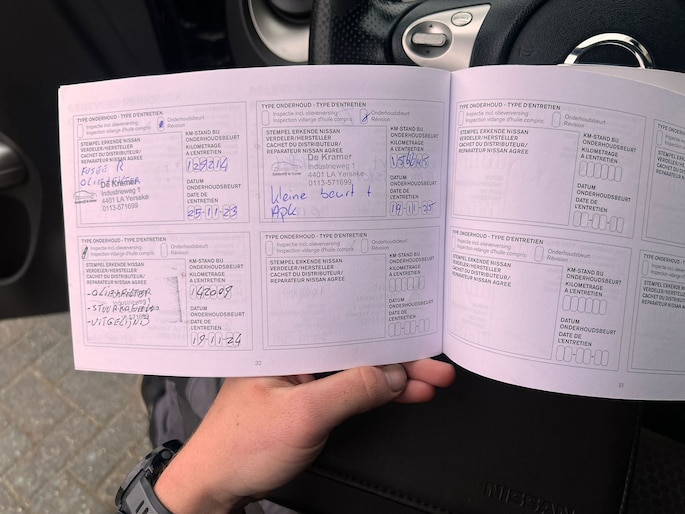 TYPE ONDERHOUD - TYPE D'ENTRETIEN
Inspectie incl. olieverversing
Inspection vidange d'huile compris
Onderhoudsbeurt
Révision
STEMPEL ERKENDE NISSAN
VERDELER/HERSTELLER
CACHET DU DISTRIBUTEUR/
REPARATEUR NISSAN AGREE
OLIEFILTER
De Kramer
Industrieweg 1
4401 LA Yerseke
0113-571699
KM-STAND BIJ
ONDERHOUDSBEURT
KILOMETRAGE
A L'ENTRETIEN
DATUM
ONDERHOUDSBEURT
DATE DE
L'ENTRETIEN
25-11-23
TYPE ONDERHOUD - TYPE D'ENTRETIEN
Inspectie incl. olieverversing
Inspection vidange d'huile compris
Onderhoudsbeurt
Révision
STEMPEL ERKENDE NISSAN
VERDELER/HERSTELLER
CACHET DU DISTRIBUTEUR/
REPARATEUR NISSAN AGREE
De Kramer
Industrieweg 1
4401 LA Yerseke
0113-571699
kleine beurt +
Apk
KM-STAND BIJ
ONDERHOUDSBEURT
KILOMETRAGE
A L'ENTRETIEN
DATUM
ONDERHOUDSBEURT
DATE DE
L'ENTRETIEN
19-11-25
TYPE ONDERHOUD - TYPE D'ENTRETIEN
Inspectie incl. olieverversing
Inspection vidange d'huile compris
Onderhoudsbeurt
Révision
STEMPEL ERKENDE NISSAN
VERDELER/HERSTELLER
CACHET DU DISTRIBUTEUR/
REPARATEUR NISSAN AGREE
KM-STAND BIJ
ONDERHOUDSBEURT
KILOMETRAGE
A L'ENTRETIEN
DATUM
ONDERHOUDSBEURT
DATE DE
L'ENTRETIEN
TYPE ONDERHOUD - TYPE D'ENTRETIEN
Inspectie incl. olieverversing
Inspection vidange d'huile compris
Onderhoudsbeurt
Révision
STEMPEL ERKENDE NISSAN
VERDELER/HERSTELLER
CACHET DU DISTRIBUTEUR/
REPARATEUR NISSAN AGREE
-OLIEFILTER
-UITGELIJND
KM-STAND BIJ
ONDERHOUDSBEURT
KILOMETRAGE
A L'ENTRETIEN
142609
DATUM
ONDERHOUDSBEURT
DATE DE
L'ENTRETIEN
19-11-24
TYPE ONDERHOUD - TYPE D'ENTRETIEN
Inspectie incl. olieverversing
Inspection vidange d'huile compris
Onderhoudsbeurt
Révision
STEMPEL ERKENDE NISSAN
VERDELER/HERSTELLER
CACHET DU DISTRIBUTEUR/
REPARATEUR NISSAN AGREE
KM-STAND BIJ
ONDERHOUDSBEURT
KILOMETRAGE
A L'ENTRETIEN
DATUM
ONDERHOUDSBEURT
DATE DE
L'ENTRETIEN
TYPE ONDERHOUD - TYPE D'ENTRETIEN
Inspectie incl. olieverversing
Inspection vidange d'huile compris
Onderhoudsbeurt
Révision
STEMPEL ERKENDE NISSAN
VERDELER/HERSTELLER
CACHET DU DISTRIBUTEUR/
REPARATEUR NISSAN AGREE
KM-STAND BIJ
ONDERHOUDSBEURT
KILOMETRAGE
A L'ENTRETIEN
DATUM
ONDERHOUDSBEURT
DATE DE
L'ENTRETIEN
32
33
NISSAN